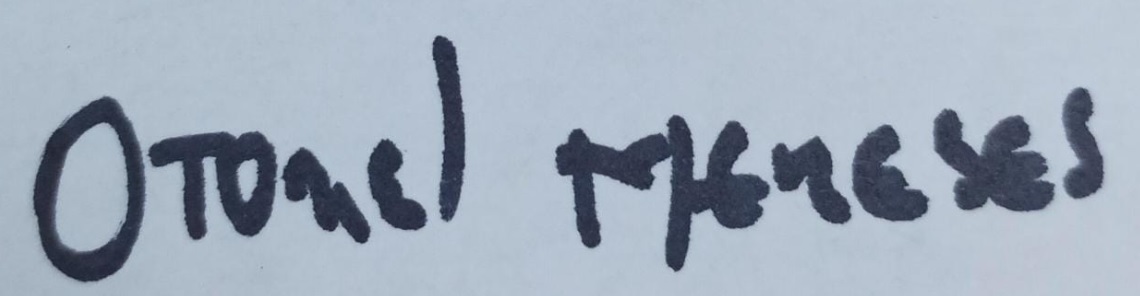 Otonel Meneses